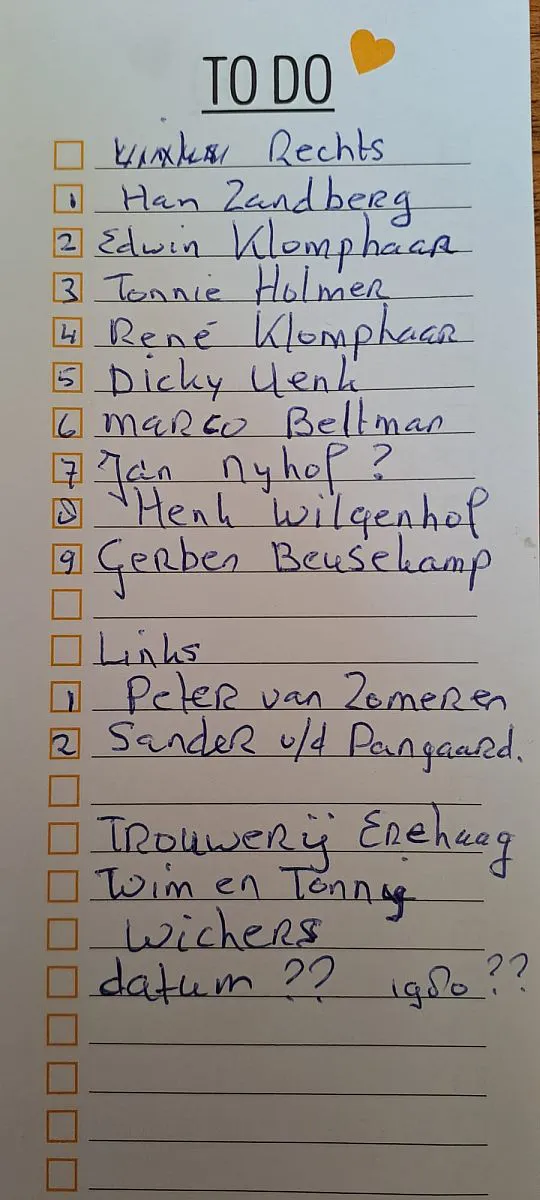 TO DO
Rechts
1 Han Zandberg
2 Edwin Klomphaar
3 Tonnie Holmer
4 René Klomphaar
5 Dicky Henk
6 Marco Beltman
7 Jan Nyhof ?
8 Henk Wilgenhof
9 Gerben Beusekamp
Links
1 Peter van Zomeren
2 Sander v/d Pangaard.
Trouwerij Erehaag
Wim en Tonny
Wichers
datum ?? 1980 ??